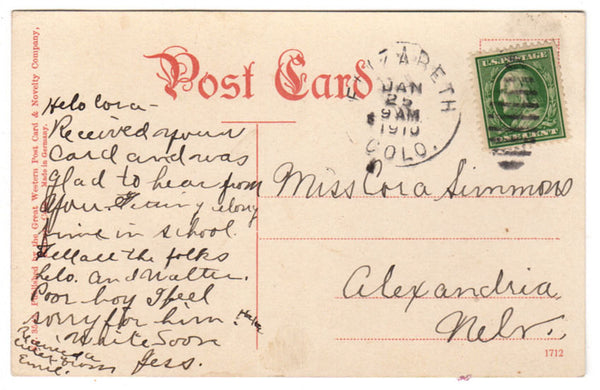 Post Card
ELIZABETH
JAN
25
9 AM
1910
COLO.
U.S. POSTAGE
Helo Cora-
Received your
Card and was
glad to hear from
you. along
fine in school.
Tell all the folks
helo. and Walter.
Poor boy I feel
sorry for him. Ha Ha
Write Soon
Jess.
Received a
letter from
Emil.
Miss Cora Simmons
Alexandria
Nebr.
Published by the Great Western Post Card & Novelty Company,
Made in Germany.
1712